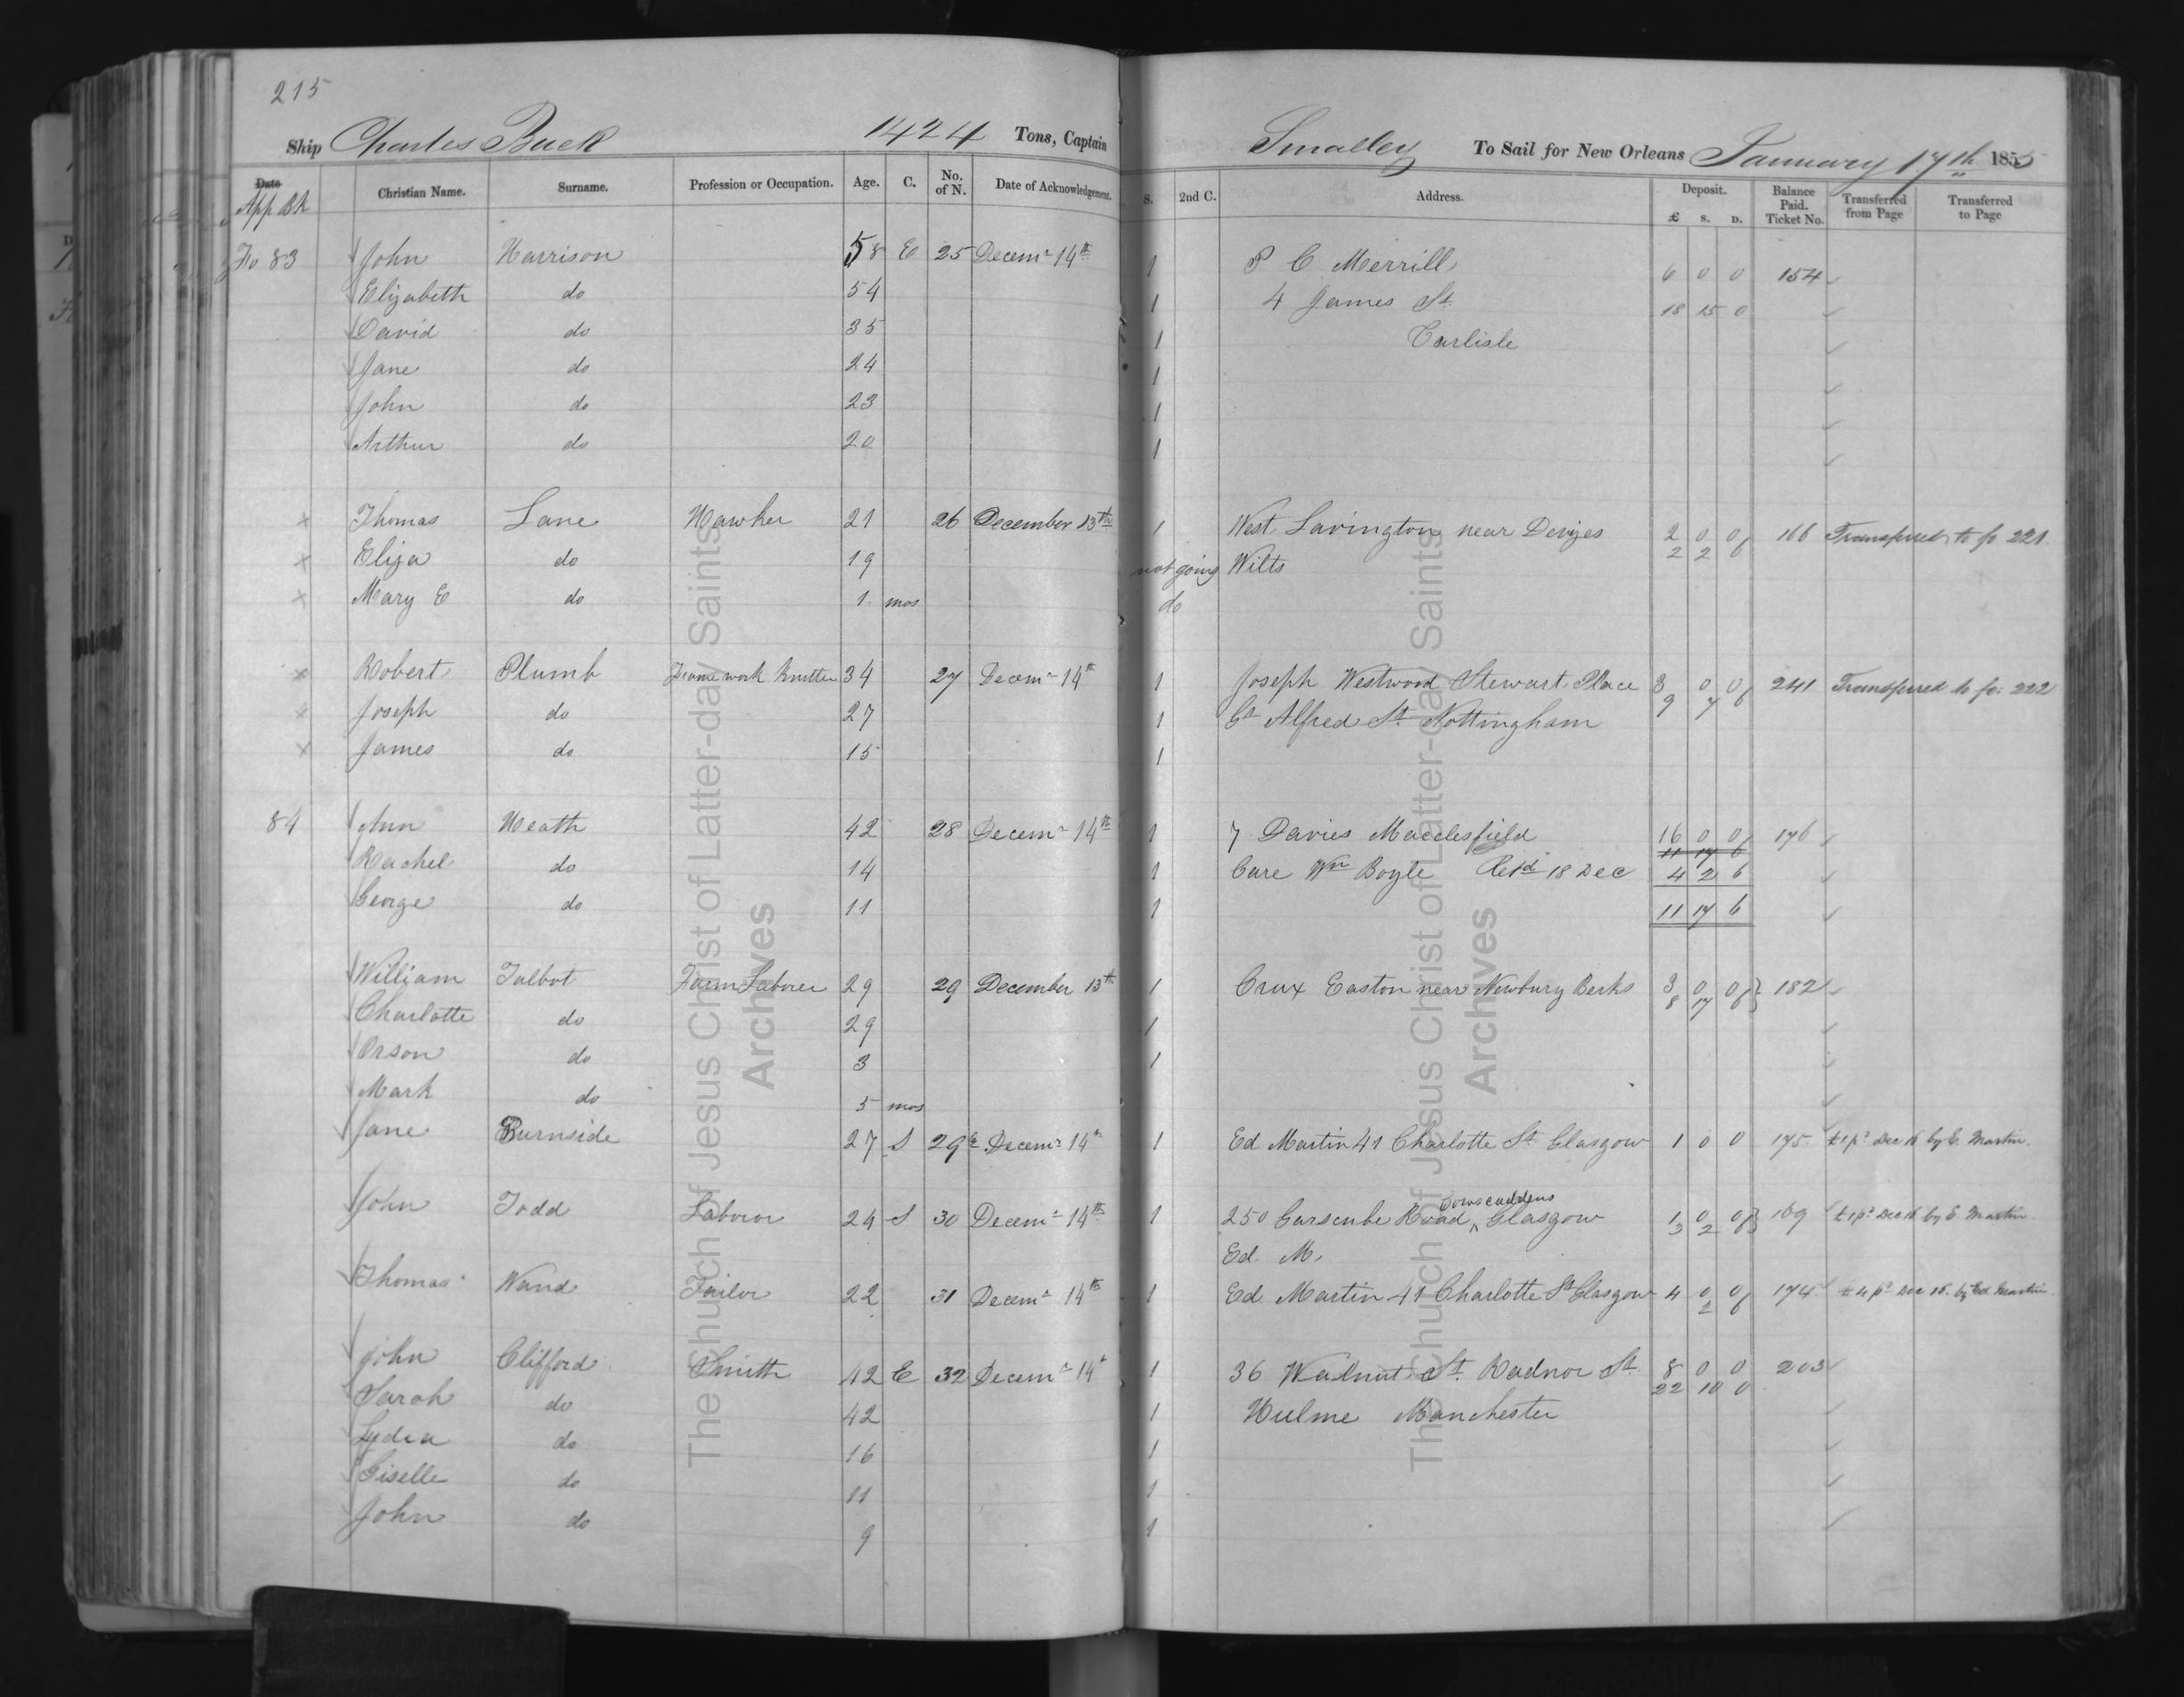 215
Ship Charles Buck 1424 Tons, Captain Smalley To Sail for New Orleans January 17th 1855
Date Christian Name. Surname. Profession or Occupation. Age. C. No. of N. Date of Acknowledgement. S. 2nd C. Address. Deposit. £ S. D. Balance Paid. Ticket No. Transferred from Page Transferred to Page
App Bk
Fo 83 John Harrison 58 E 25 Decemr 14th 1 P C Merrill 6 0 0 154
Elizabeth do 54 1 4 James St 18 15 0
David do 35 1 Carlisle
Jane do 24 1
John do 23 1
Arthur do 20 1
x Thomas Lane Hawker 21 26 December 13th 1 West Lavington near Devizes 2 0 0 166 Transferred to fo 221
2 2 6
x Eliza do 19 not going Wilts
x Mary E do 1 mos do
x Robert Plumb Frame work Knitter 34 27 Decemr 14th 1 Joseph Westwood Stewart Place 3 0 0 241 Transferred to fo: 222
9 7 6
x Joseph do 27 1 Gt Alfred St Nottingham
x James do 15 1
84 Ann Heath 42 28 Decemr 14th 1 7 Davies Macclesfield 16 0 0 176
11 17 6
Rachel do 14 1 Care Wm Boyle Retd 18 Dec 4 2 6
George do 11 1 11 17 6
William Talbot Farm Laborer 29 29 December 13th 1 Crux Easton near Newbury Berks 3 0 0 182
8 17 6
Charlotte do 29 1
Orson do 3 1
Mark do 5 mos
Jane Burnside 27 S 29 Decemr 14th 1 Ed Martin 41 Charlotte St Glasgow 1 0 0 175 £1 pd Dec 16 by E. Martin
John Todd Laborer 24 S 30 Decemr 14th 1 250 Garscube Road Cowcaddens Glasgow 1 0 0 169 £1 pd Dec 16 by E Martin
3 2 6
Ed. M.
Thomas Wand Tailor 22 31 Decemr 14th 1 Ed Martin 41 Charlotte St Glasgow 4 0 0 174 £4 pd Dec 16. by Ed Martin
2 6
John Clifford Smith 42 E 32 Decemr 14th 1 36 Walnut St. Radnor St. 8 0 0 203
22 10 0
Sarah do 42 1 Hulme Manchester
Lydia do 16 1
Giselle do 11 1
John do 9 1
The Church of Jesus Christ of Latter-day Saints
Archives
The Church of Jesus Christ of Latter-day Saints
Archives